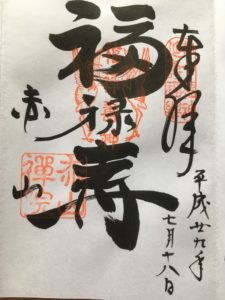 奉拝
平成廿九年
七月十八日
福禄寿
赤山
赤山
禅院